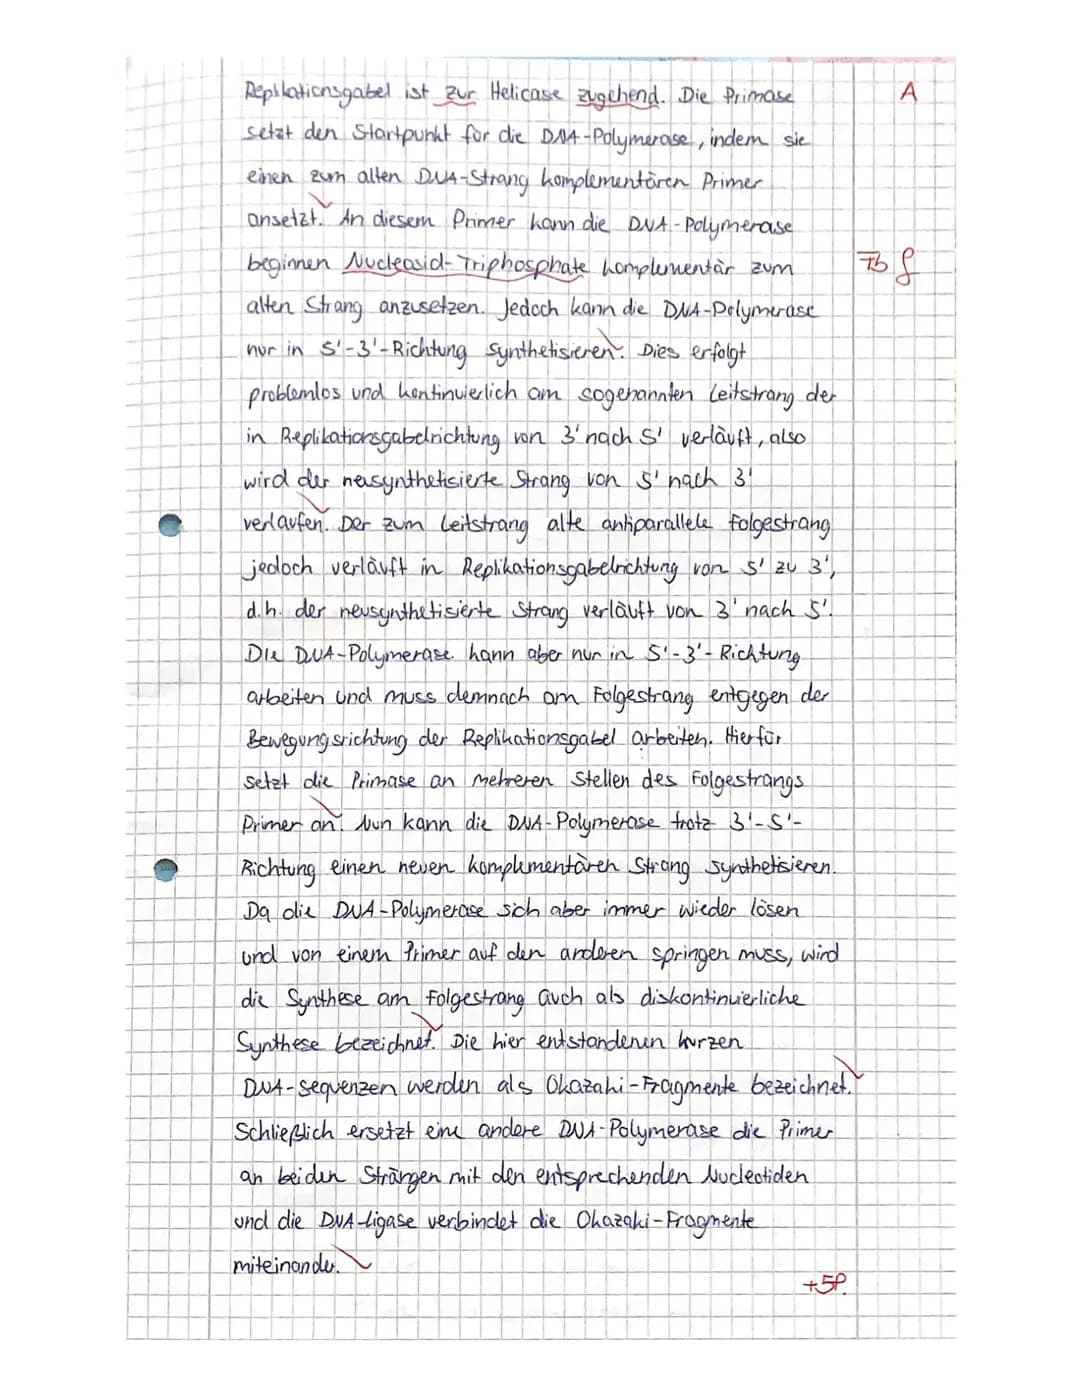 Replikationsgabel ist zur Helicase zugehend. Die Primase A
setzt den Startpunkt für die DNA-Polymerase, indem sie
einen zum alten DNA-Strang komplementären Primer
ansetzt. An diesem Primer kann die DNA-Polymerase
beginnen Nucleosid-Triphosphate komplementär zum Fb f
alten Strang anzusetzen. Jedoch kann die DNA-Polymerase
nur in 5'-3'-Richtung synthetisieren. Dies erfolgt
problemlos und kontinuierlich am sogenannten Leitstrang der
in Replikationsgabelrichtung von 3' nach 5' verläuft, also
wird der neusynthetisierte Strang von 5' nach 3'
verlaufen. Der zum Leitstrang alte antiparallele Folgestrang
jedoch verläuft in Replikationsgabelrichtung von 5' zu 3',
d.h. der neusynthetisierte Strang verläuft von 3' nach 5'.
Die DNA-Polymerase kann aber nur in 5'-3'-Richtung
arbeiten und muss demnach am Folgestrang entgegen der
Bewegungsrichtung der Replikationsgabel arbeiten. Hierfür
setzt die Primase an mehreren Stellen des Folgestrangs
Primer an. Nun kann die DNA-Polymerase trotz 3'-5'-
Richtung einen neuen komplementären Strang synthetisieren.
Da die DNA-Polymerase sich aber immer wieder lösen
und von einem Primer auf den anderen springen muss, wird
die Synthese am Folgestrang auch als diskontinuierliche
Synthese bezeichnet. Die hier entstandenen kurzen
DNA-Sequenzen werden als Okazaki-Fragmente bezeichnet.
Schließlich ersetzt eine andere DNA-Polymerase die Primer
an beiden Strängen mit den entsprechenden Nucleotiden
und die DNA-Ligase verbindet die Okazaki-Fragmente
miteinander.
+5P.